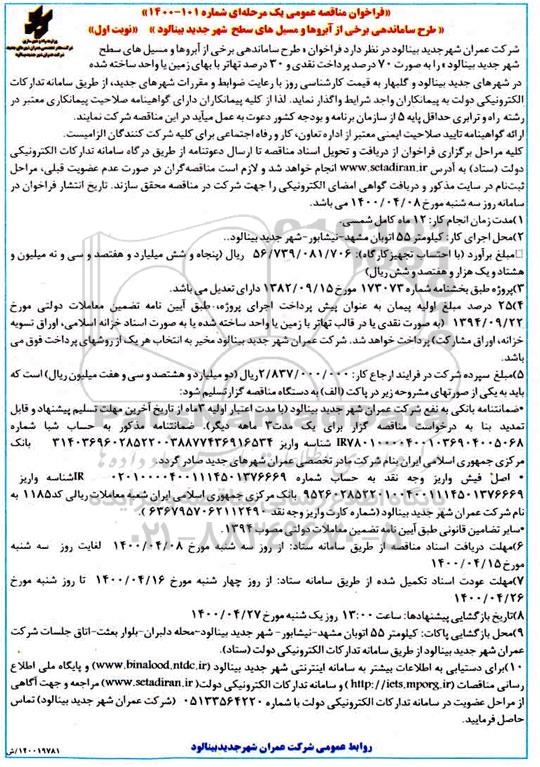 «فراخوان مناقصه عمومی یک مرحله‌ای شماره ۱۰۱-۱۴۰۰»
« طرح ساماندهی برخی از آبروها و مسیل های سطح شهر جدید بینالود » «نوبت اول»
شرکت عمران شهر جدید بینالود در نظر دارد فراخوان « طرح ساماندهی برخی از آبروها و مسیل های سطح
شهر جدید بینالود » را به صورت ۷۰ درصد پرداخت نقدی و ۳۰ درصد تهاتر با بهای زمین یا واحد ساخته شده
در شهرهای جدید بینالود و گلبهار به قیمت کارشناسی روز با رعایت ضوابط و مقررات شهرهای جدید، از طریق سامانه تدارکات
الکترونیکی دولت به پیمانکاران واجد شرایط واگذار نماید. لذا از کلیه پیمانکاران دارای گواهینامه صلاحیت پیمانکاری معتبر در
رشته راه و ترابری حداقل پایه ۵ از سازمان برنامه و بودجه کشور دعوت به عمل میآید در این مناقصه شرکت نمایند.
ارائه گواهینامه تایید صلاحیت ایمنی معتبر از اداره تعاون، کار و رفاه اجتماعی برای کلیه شرکت کنندگان الزامیست.
کلیه مراحل برگزاری فراخوان از دریافت و تحویل اسناد مناقصه تا ارسال دعوتنامه از طریق درگاه سامانه تدارکات الکترونیکی
دولت (ستاد) به آدرس www.setadiran.ir انجام خواهد شد و لازم است مناقصه‌گران در صورت عدم عضویت قبلی، مراحل
ثبت‌نام در سایت مذکور و دریافت گواهی امضای الکترونیکی را جهت شرکت در مناقصه محقق سازند. تاریخ انتشار فراخوان در
سامانه روز سه شنبه مورخ ۱۴۰۰/۰۴/۰۸ می باشد.
۱)مدت زمان انجام کار: ۱۲ ماه کامل شمسی.
۲)محل اجرای کار: کیلومتر ۵۵ اتوبان مشهد-نیشابور-شهر جدید بینالود..
مبلغ برآورد (با احتساب تجهیز کارگاه): ۵۶/۷۳۹/۰۸۱/۷۰۶ ریال (پنجاه و شش میلیارد و هفتصد و سی و نه میلیون و
هشتاد و یک هزار و هفتصد و شش ریال)
۳)پروژه طبق بخشنامه شماره ۱۷۳۰۷۳ مورخ ۱۳۸۲/۰۹/۱۵ دارای تعدیل می باشد.
۴)۲۵ درصد مبلغ اولیه پیمان به عنوان پیش پرداخت اجرای پروژه، طبق آیین نامه تضمین معاملات دولتی مورخ
۱۳۹۴/۰۹/۲۲ (به صورت نقدی یا در قالب تهاتر با زمین یا واحد ساخته شده یا به صورت اسناد خزانه اسلامی، اوراق تسویه
خزانه، اوراق مشارکت) پرداخت خواهد شد. شرکت عمران شهر جدید بینالود مخیر به انتخاب هر یک از روشهای پرداخت فوق می
باشد.
۵)مبلغ سپرده شرکت در فرایند ارجاع کار: ۲/۸۳۷/۰۰۰/۰۰۰ریال (دو میلیارد و هشتصد و سی و هفت میلیون ریال) است که
باید به یکی از صورتهای مشروحه زیر در پاکت (الف) به دستگاه مناقصه گزار تسلیم شود:
•ضمانتنامه بانکی به نفع شرکت عمران شهر جدید بینالود (با مدت اعتبار اولیه ۳ماه از تاریخ آخرین مهلت تسلیم پیشنهاد و قابل
تمدید بنا به درخواست مناقصه گزار برای یک مدت۳ ماهه دیگر). ضمانتنامه مذکور به حساب شبا شماره
IR۷۸۰۱۰۰۰۰۴۰۰۱۰۳۶۹۰۴۰۰۵۰۶۸ شناسه واریز ۳۱۴۰۳۶۹۶۰۲۸۵۲۲۰۰۳۸۸۷۷۴۳۶۹۱۶۵۳۴ بانک
مرکزی جمهوری اسلامی ایران بنام شرکت مادر تخصصی عمران شهرهای جدید صادر گردد.
• اصل فیش واریز وجه نقد به حساب شماره IR۰۲۰۱۰۰۰۰۴۰۰۱۱۱۴۵۰۱۳۷۶۶۶۹شناسه واریز
بانک مرکزی جمهوری اسلامی ایران شعبه معاملات ریالی کد۱۱۸۵ به
نام شرکت عمران شهر جدید بینالود (شماره کارت واریز وجه نقد ۶۳۶۷۹۵۷۰۶۲۱۱۲۴۹۰ )
•سایر تضامین قانونی طبق آیین نامه تضمین معاملات دولتی مصوب ۱۳۹۴.
۶)مهلت دریافت اسناد مناقصه از طریق سامانه ستاد: از روز سه شنبه مورخ ۱۴۰۰/۰۴/۰۸ لغایت روز سه شنبه
مورخ ۱۴۰۰/۰۴/۱۵
۷)مهلت عودت اسناد تکمیل شده از طریق سامانه ستاد: از روز چهار شنبه مورخ ۱۴۰۰/۰۴/۱۶ تا روز شنبه مورخ
۱۴۰۰/۰۴/۲۶
۸)تاریخ بازگشایی پیشنهادها: ساعت ۱۳:۰۰ روز یک شنبه مورخ ۱۴۰۰/۰۴/۲۷
۹)محل بازگشایی پاکات: کیلومتر ۵۵ اتوبان مشهد-نیشابور- شهر جدید بینالود-محله دلبران-بلوار بعثت-اتاق جلسات شرکت
عمران شهر جدید بینالود از طریق سامانه تدارکات الکترونیکی دولت (ستاد).
۱۰)برای دستیابی به اطلاعات بیشتر به سامانه اینترنتی شهر جدید بینالود (www.binalood.ntdc.ir) و پایگاه ملی اطلاع
رسانی مناقصات (http://iets.mporg.ir) و سامانه تدارکات الکترونیکی دولت( www.setadiran.ir) مراجعه و جهت آگاهی
از مراحل عضویت در سامانه تدارکات الکترونیکی دولت با شماره ۰۵۱۳۳۵۶۴۲۲۰ (شرکت عمران شهر جدید بینالود) تماس
حاصل فرمایید.
روابط عمومی شرکت عمران شهر جدید بینالود
۱۴۰۰۱۹۷۸۱/ش